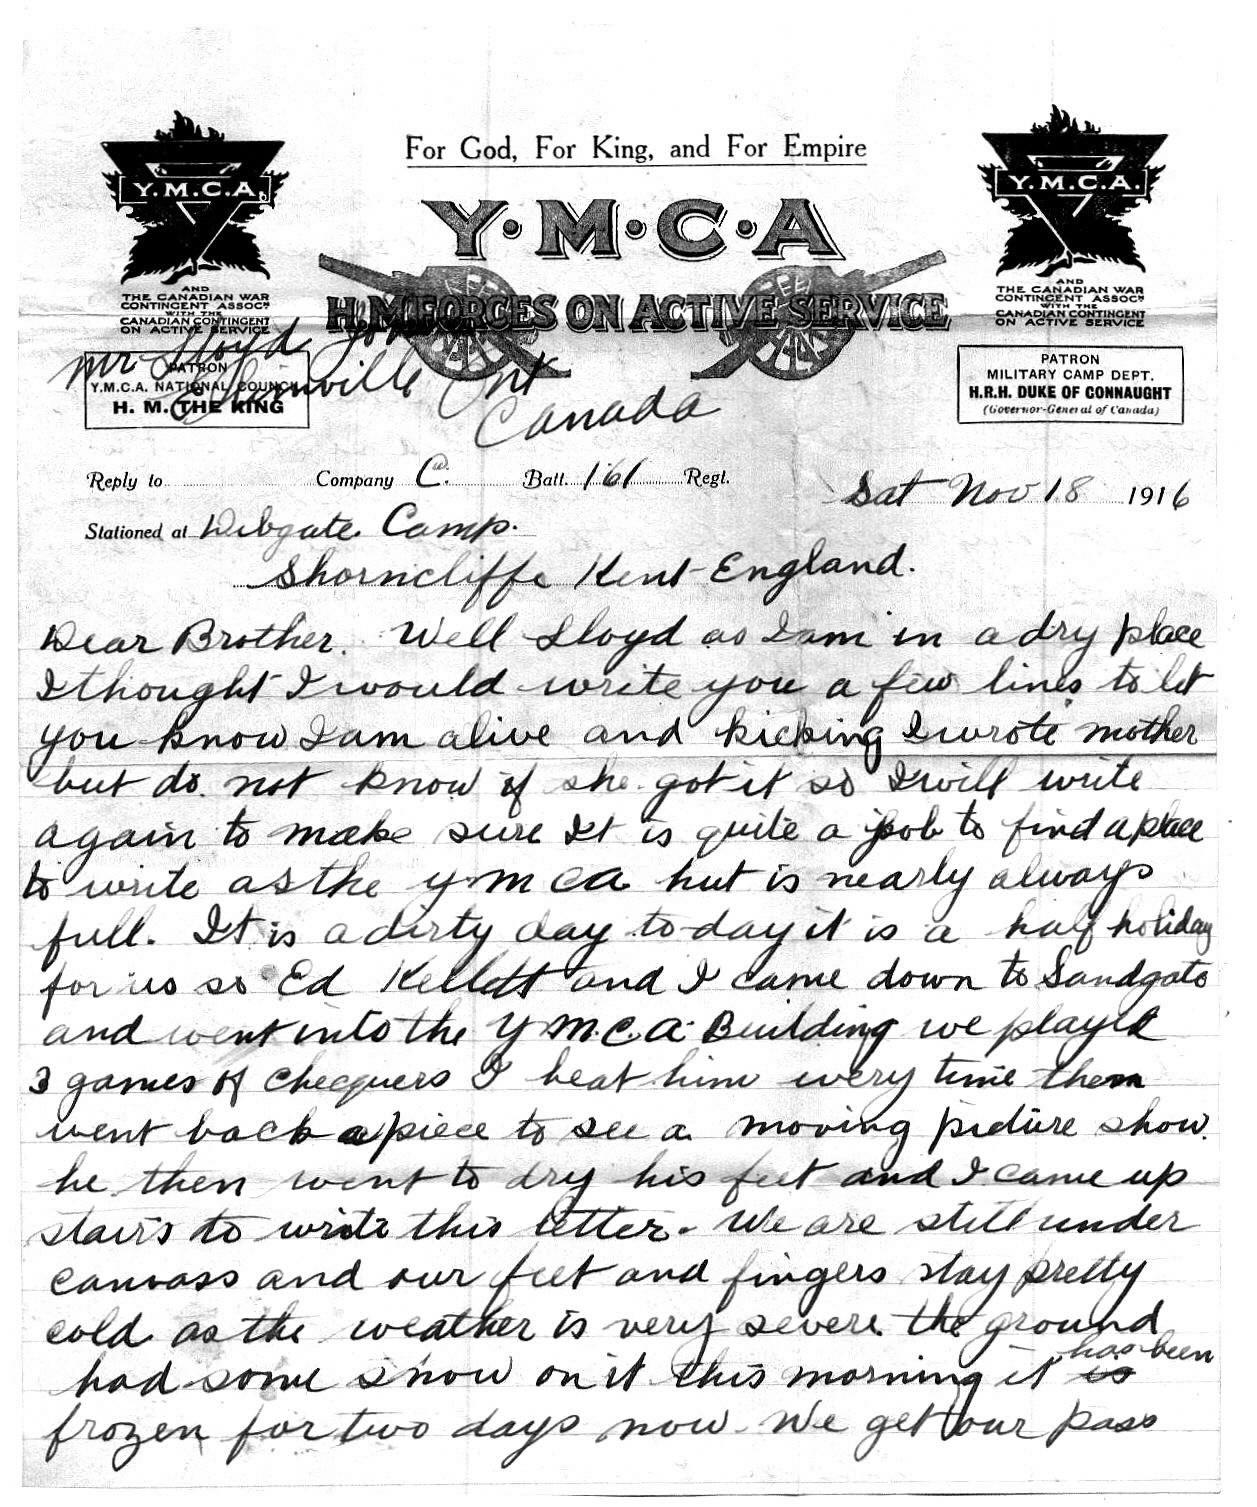 For God, For King, and For Empire
Y.M.C.A.
Y·M·C·A
Y.M.C.A.
H.M. FORCES ON ACTIVE SERVICE
AND
THE CANADIAN WAR
CONTINGENT ASSOCN
WITH THE
CANADIAN CONTINGENT
ON ACTIVE SERVICE
AND
THE CANADIAN WAR
CONTINGENT ASSOCN
WITH THE
CANADIAN CONTINGENT
ON ACTIVE SERVICE
Mr Lloyd
Elimville Ont
Canada
PATRON
Y.M.C.A. NATIONAL COUNCIL
H. M. THE KING
PATRON
MILITARY CAMP DEPT.
H.R.H. DUKE OF CONNAUGHT
(Governor-General of Canada)
Reply to Company C. Batt. 161 Regt.
Sat Nov 18 1916
Stationed at Dibgate Camp.
Shorncliffe Kent England.
Dear Brother. Well Lloyd as I am in a dry place
I thought I would write you a few lines to let
you know I am alive and kicking I wrote mother
but do not know if she got it so I will write
again to make sure It is quite a job to find a place
to write as the Y M C A hut is nearly always
full. It is a dirty day to-day it is a half holiday
for us so Ed Kellett and I came down to Sandgate
and went into the Y.M.C.A. Building we played
3 games of Checquers I beat him every time then
went back a piece to see a moving picture show.
he then went to dry his feet and I came up
stairs to write this letter. We are still under
canvass and our feet and fingers stay pretty
cold as the weather is very severe the ground
had some snow on it this morning it is has been
frozen for two days now. We get our pass